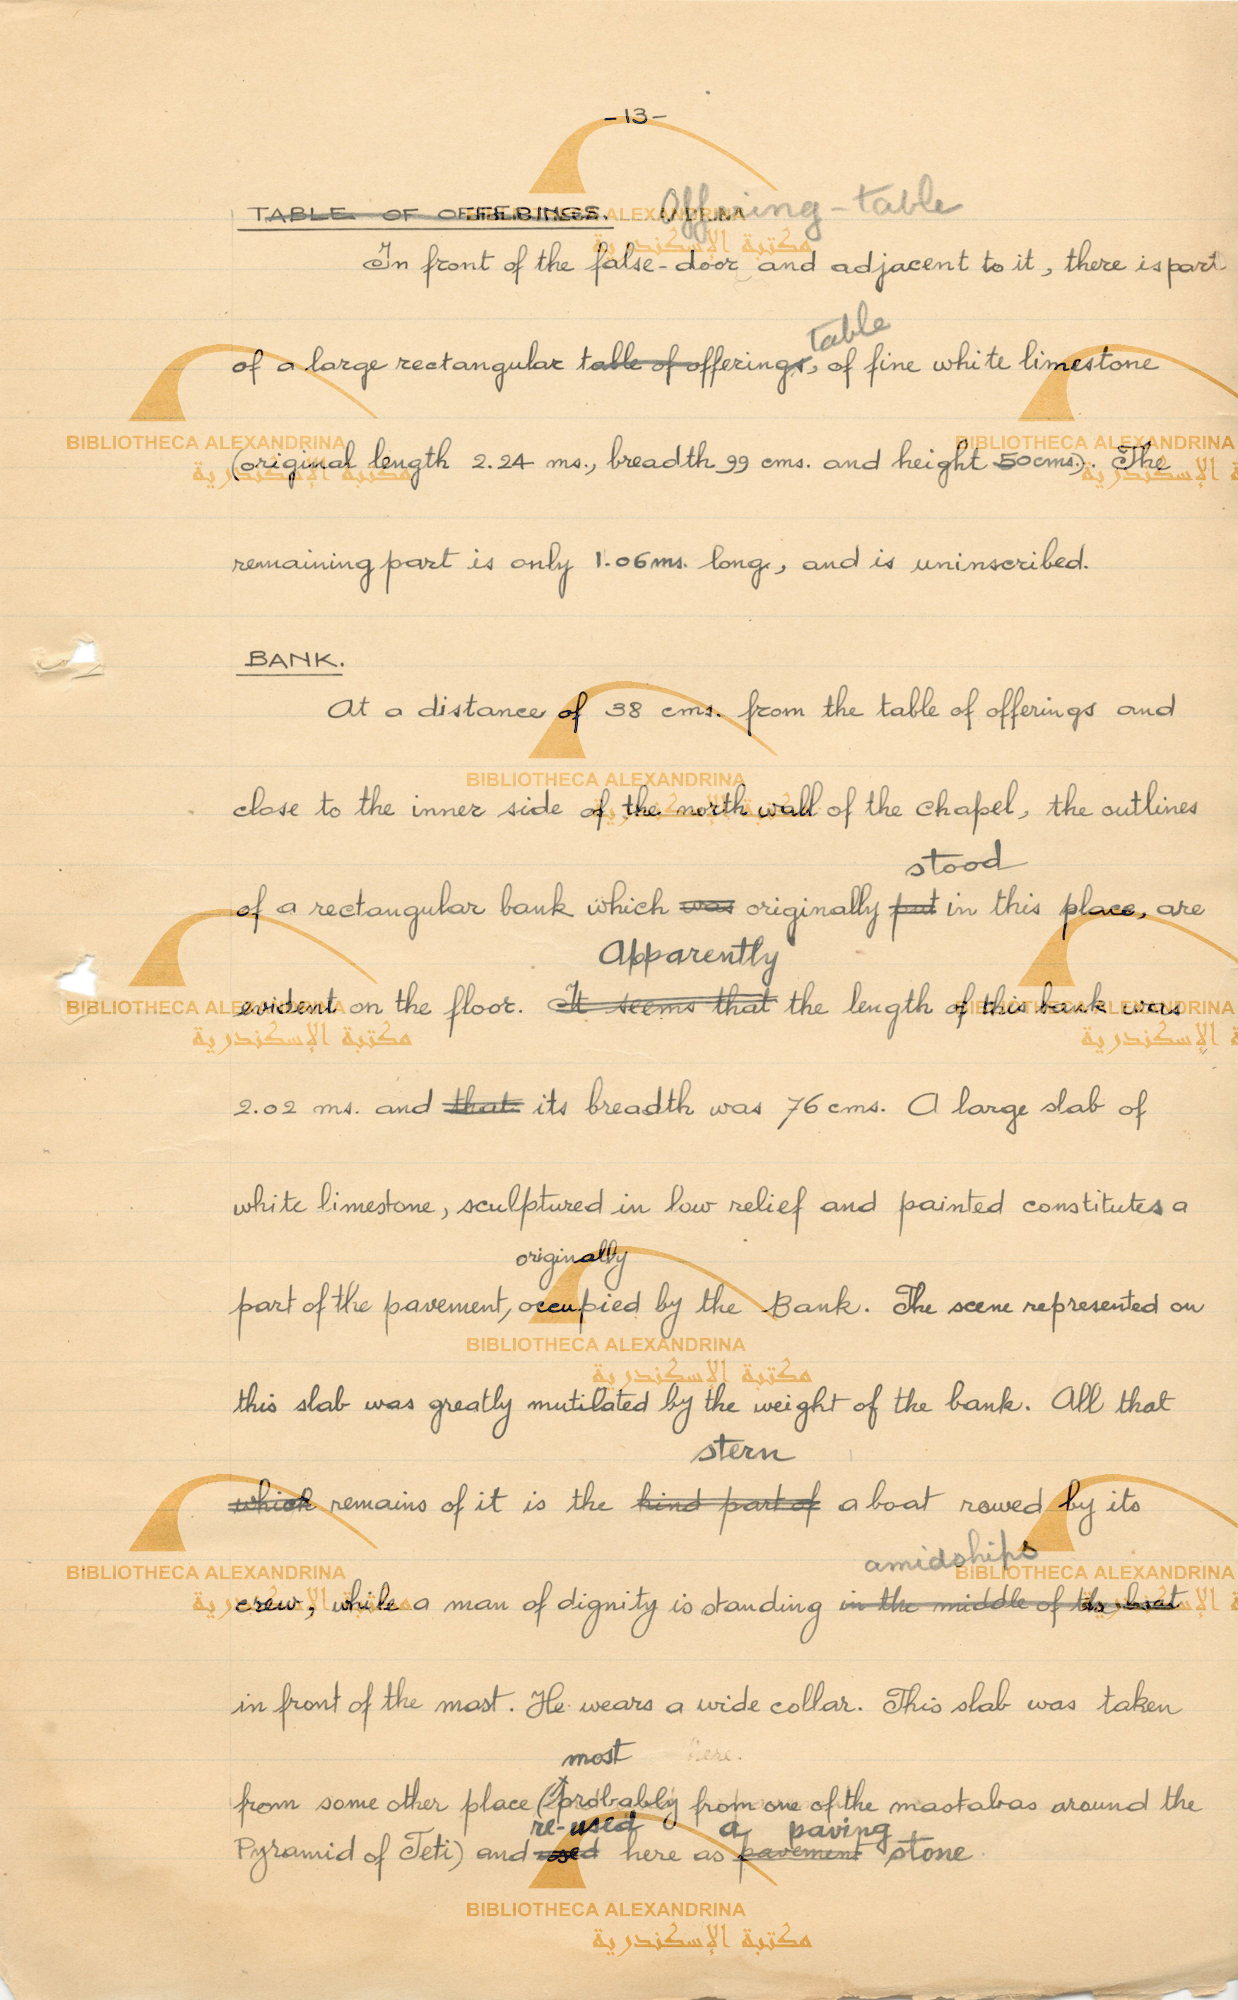 -13-
TABLE OF OFFERINGS. Offering-table
In front of the false-door and adjacent to it, there is part
table
of a large rectangular table of offerings, of fine white limestone
(original length 2.24 ms., breadth 99 cms. and height 50 cms.). The
remaining part is only 1.06 ms. long, and is uninscribed.
BANK.
At a distance of 38 cms. from the table of offerings and
close to the inner side of the north wall of the chapel, the outlines
stood
of a rectangular bank which was originally put in this place, are
Apparently
evident on the floor. It seems that the length of this bank was
2.02 ms. and that its breadth was 76 cms. A large slab of
white limestone, sculptured in low relief and painted constitutes a
originally
part of the pavement, occupied by the Bank. The scene represented on
this slab was greatly mutilated by the weight of the bank. All that
stern
which remains of it is the hind part of a boat rowed by its
amidships
crew, while a man of dignity is standing in the middle of the boat
in front of the mast. He wears a wide collar. This slab was taken
most here.
from some other place (probably from one of the mastabas around the
re-used a paving
Pyramid of Teti) and used here as pavement stone.
BIBLIOTHECA ALEXANDRINA
مكتبة الإسكندرية